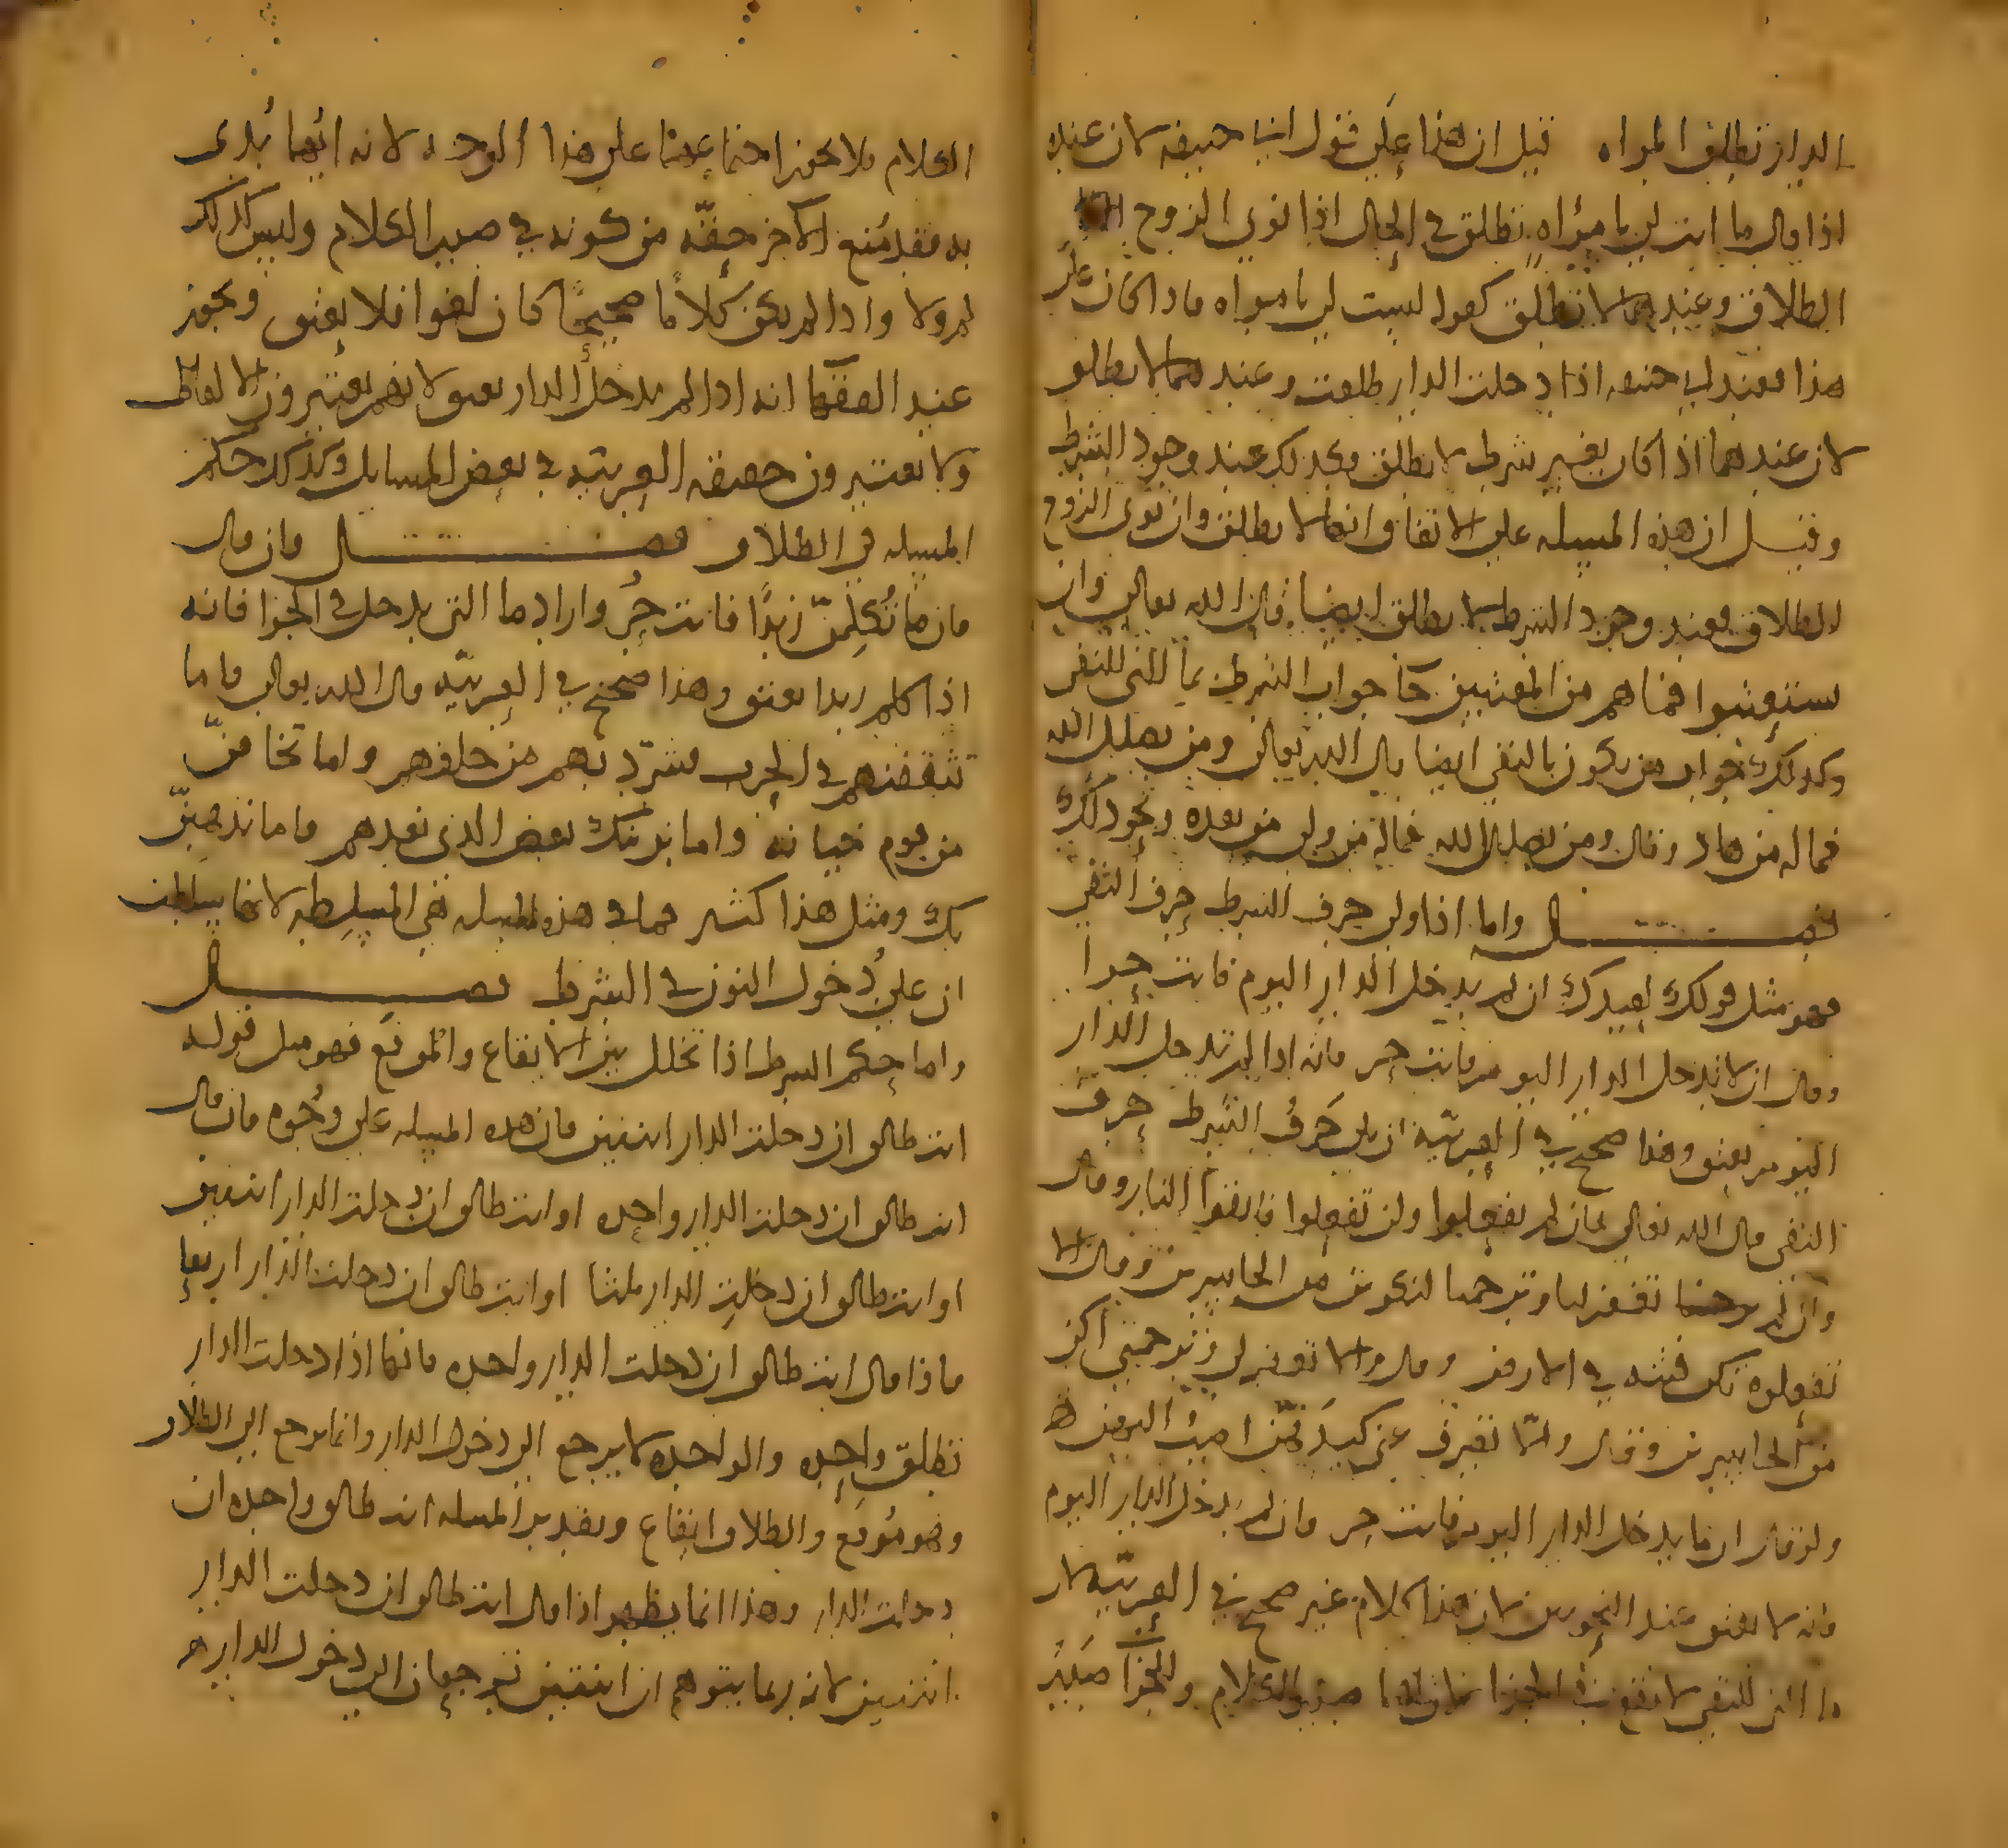 الدار تطلق المراه قيل ان هذا على قول ابي حنيفه لان عنده
اذا قال ما انت لي بامراه تطلق في الحال اذا نوى الزوج
الطلاق وعندهما لا تطلق كقوله لست لي بامراه فاذا كان على
هذا فعند ابي حنيفه اذا دخلت الدار طلقت وعندهما لا تطلق
لان عندهما اذا كان بغير شرط لا تطلق فكذلك عند وجود الشرط
وقيل ان هذه المسله على الاتفاق انها لا تطلق وان نوى الزوج
الطلاق فعند وجود الشرط لا تطلق ايضا قال الله تعالى وان
يستعتبوا فما هم من المعتبين جا جواب الشرط بما التي للنفي
وكذلك جواب من يكون بالنفي ايضا قال الله تعالى ومن يضلل الله
فما له من هاد وقال ومن يضلل الله فما له من ولي من بعده ونحو ذلك
فصل واما اذا ولي حرف الشرط حرف النفي
فهو مثل قولك لعبدك ان لم يدخل الدار اليوم فانت حرا
وقال ان لا تدخل الدار اليوم فانت حر فانه اذا لم تدخل الدار
اليوم يعتق وهذا صحيح في العربيه ان يلي حرف الشرط حرف
النفي قال الله تعالى فان لم تفعلوا ولن تفعلوا فاتقوا النار وقال
وان لم ترحمنا تغفر لنا وترحمنا لنكونن من الخاسرين وقال الا
تفعلوه تكن فتنه في الارض وقال والا تغفر لي وترحمني اكن
من الخاسرين وقال والا تصرف عني كيدهن اصب اليهن
ولو قال ان ما يدخل الدار اليوم فانت حر فان لم يدخل الدار اليوم
فانه لا يعتق عند النحويين لان هذا كلام غير صحيح في العربيه لان
ما التي للنفي لا تقع في الجزا لان لها صدر الكلام وللجزا صدر
الكلام فلا يجوز اجتماعهما على هذا الوجه لانه ايهما بدى
به فقد منع الاخر حقه من كونه في صدر الكلام وليس كذلك
لم ولا واذا لم يكن كلاما صحيحا كان لغوا فلا يعتق ويجوز
عند الفقها انه اذا لم يدخل الدار يعتق لانهم يعتبرون الالفاظ
ولا يعتبرون حقيقه العربيه في بعض المسايل وكذلك حكم
المسله في الطلاق فصل فان قال
فان ما تكلمن زيدا فانت حر واراد ما التي يدخل في الجزا فانه
اذا كلم زيدا يعتق وهذا صحيح في العربيه قال الله تعالى فاما
تثقفنهم في الحرب فشرد بهم من خلفهم واما تخافن
من قوم خيانه واما نرينك بعض الذي نعدهم فاما نذهبن
بك ومثل هذا كثير فما في هذه المسله هي المسلطه لانها سلطت
ان على دخول النون في الشرط فصل
واما حكم الشرط اذا تخلل بين الايقاع والموقع فهو مثل قوله
انت طالق ان دخلت الدار اثنتين فان هذه المسله على وجوه فان قال
انت طالق ان دخلت الدار واحده او انت طالق ان دخلت الدار اثنتين
او انت طالق ان دخلت الدار ثلثا او انت طالق ان دخلت الدار اربعا
فاذا قال انت طالق ان دخلت الدار واحده فانها اذا دخلت الدار
تطلق واحده والواحده لا يرجع الى دخول الدار وانما يرجع الى الطلاق
وهو موقع والطلاق ايقاع وتقدير المسله انت طالق واحده ان
دخلت الدار وهذا انما يظهر اذا قال انت طالق ان دخلت الدار
اثنتين لانه ربما يتوهم ان اثنتين ترجعان الى دخول الدار